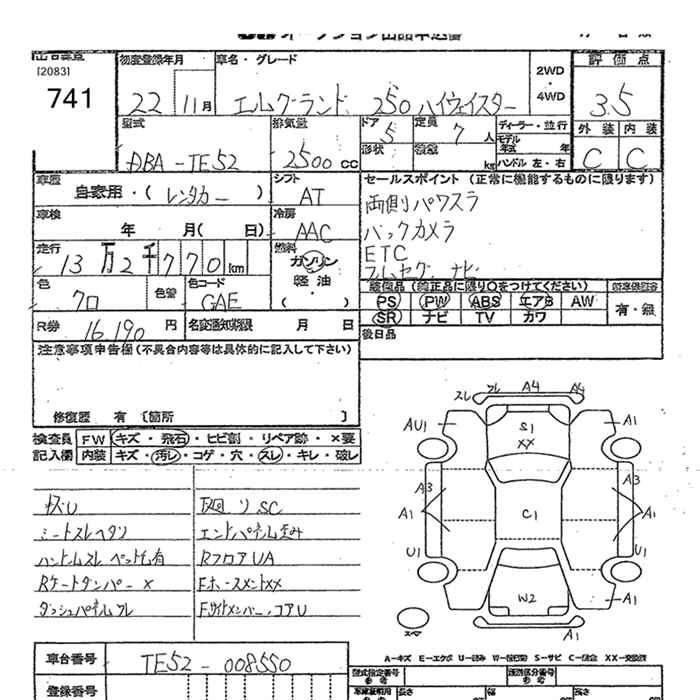 オークション出品申込書
[2083]
741
初度登録年月
22 11月
車名・グレード
エルグランド 250 ハイウェイスター
2WD
・
4WD
評価点
3.5
外装 内装
C C
型式
DBA-TE52
排気量
2500 cc
ドア
5
定員
7 人
形状
ディーラー・並行
モデル
年式 年
kg ハンドル 左・右
車歴
自家用・( レンタカー )
シフト
AT
車検
年 月( 日)
冷房
AAC
走行
13万2千770 km
燃料
ガソリン
・
軽油
・
( )
色
クロ
色替
色コード
GAE
R券
16,190 円
名変通知期限 月 日
セールスポイント (正常に機能するものに限ります)
両側パワスラ
バックカメラ
ETC
フルセグ ナビ
装備品(純正品に限り○をつけてください)
PS PW ABS エアB AW
SR ナビ TV カワ
有・無
後日品
注意事項申告欄(不具合内容等は具体的に記入して下さい)
修復歴 有 [箇所 ]
検査員 FW キズ・飛石・ヒビ割・リペア跡・×要
記入欄 内装 キズ・汚レ・コゲ・穴・スレ・キレ・破レ
キズU
シートスレヘタリ
ハンドルスレ ペット毛有
Rゲートダンパー ×
ダッシュパネルスレ
下廻り SC
エンドパネル歪み
RフロアUA
Fホースメント××
Fサイドメンバー、コアU
スレ フレ A4 A4
AU1 S1 A1
XX
A3 A3
A1 C1 A1
U1 U1
W2 A1
A1
スペア
A-キズ E-エクボ U-凹み W-補修跡 S-サビ C-腐食 XX-交換済
車台番号
TE52-008550
登録番号
型式指定番号
参考
類別区分番号
参考
長さ 幅 高さ